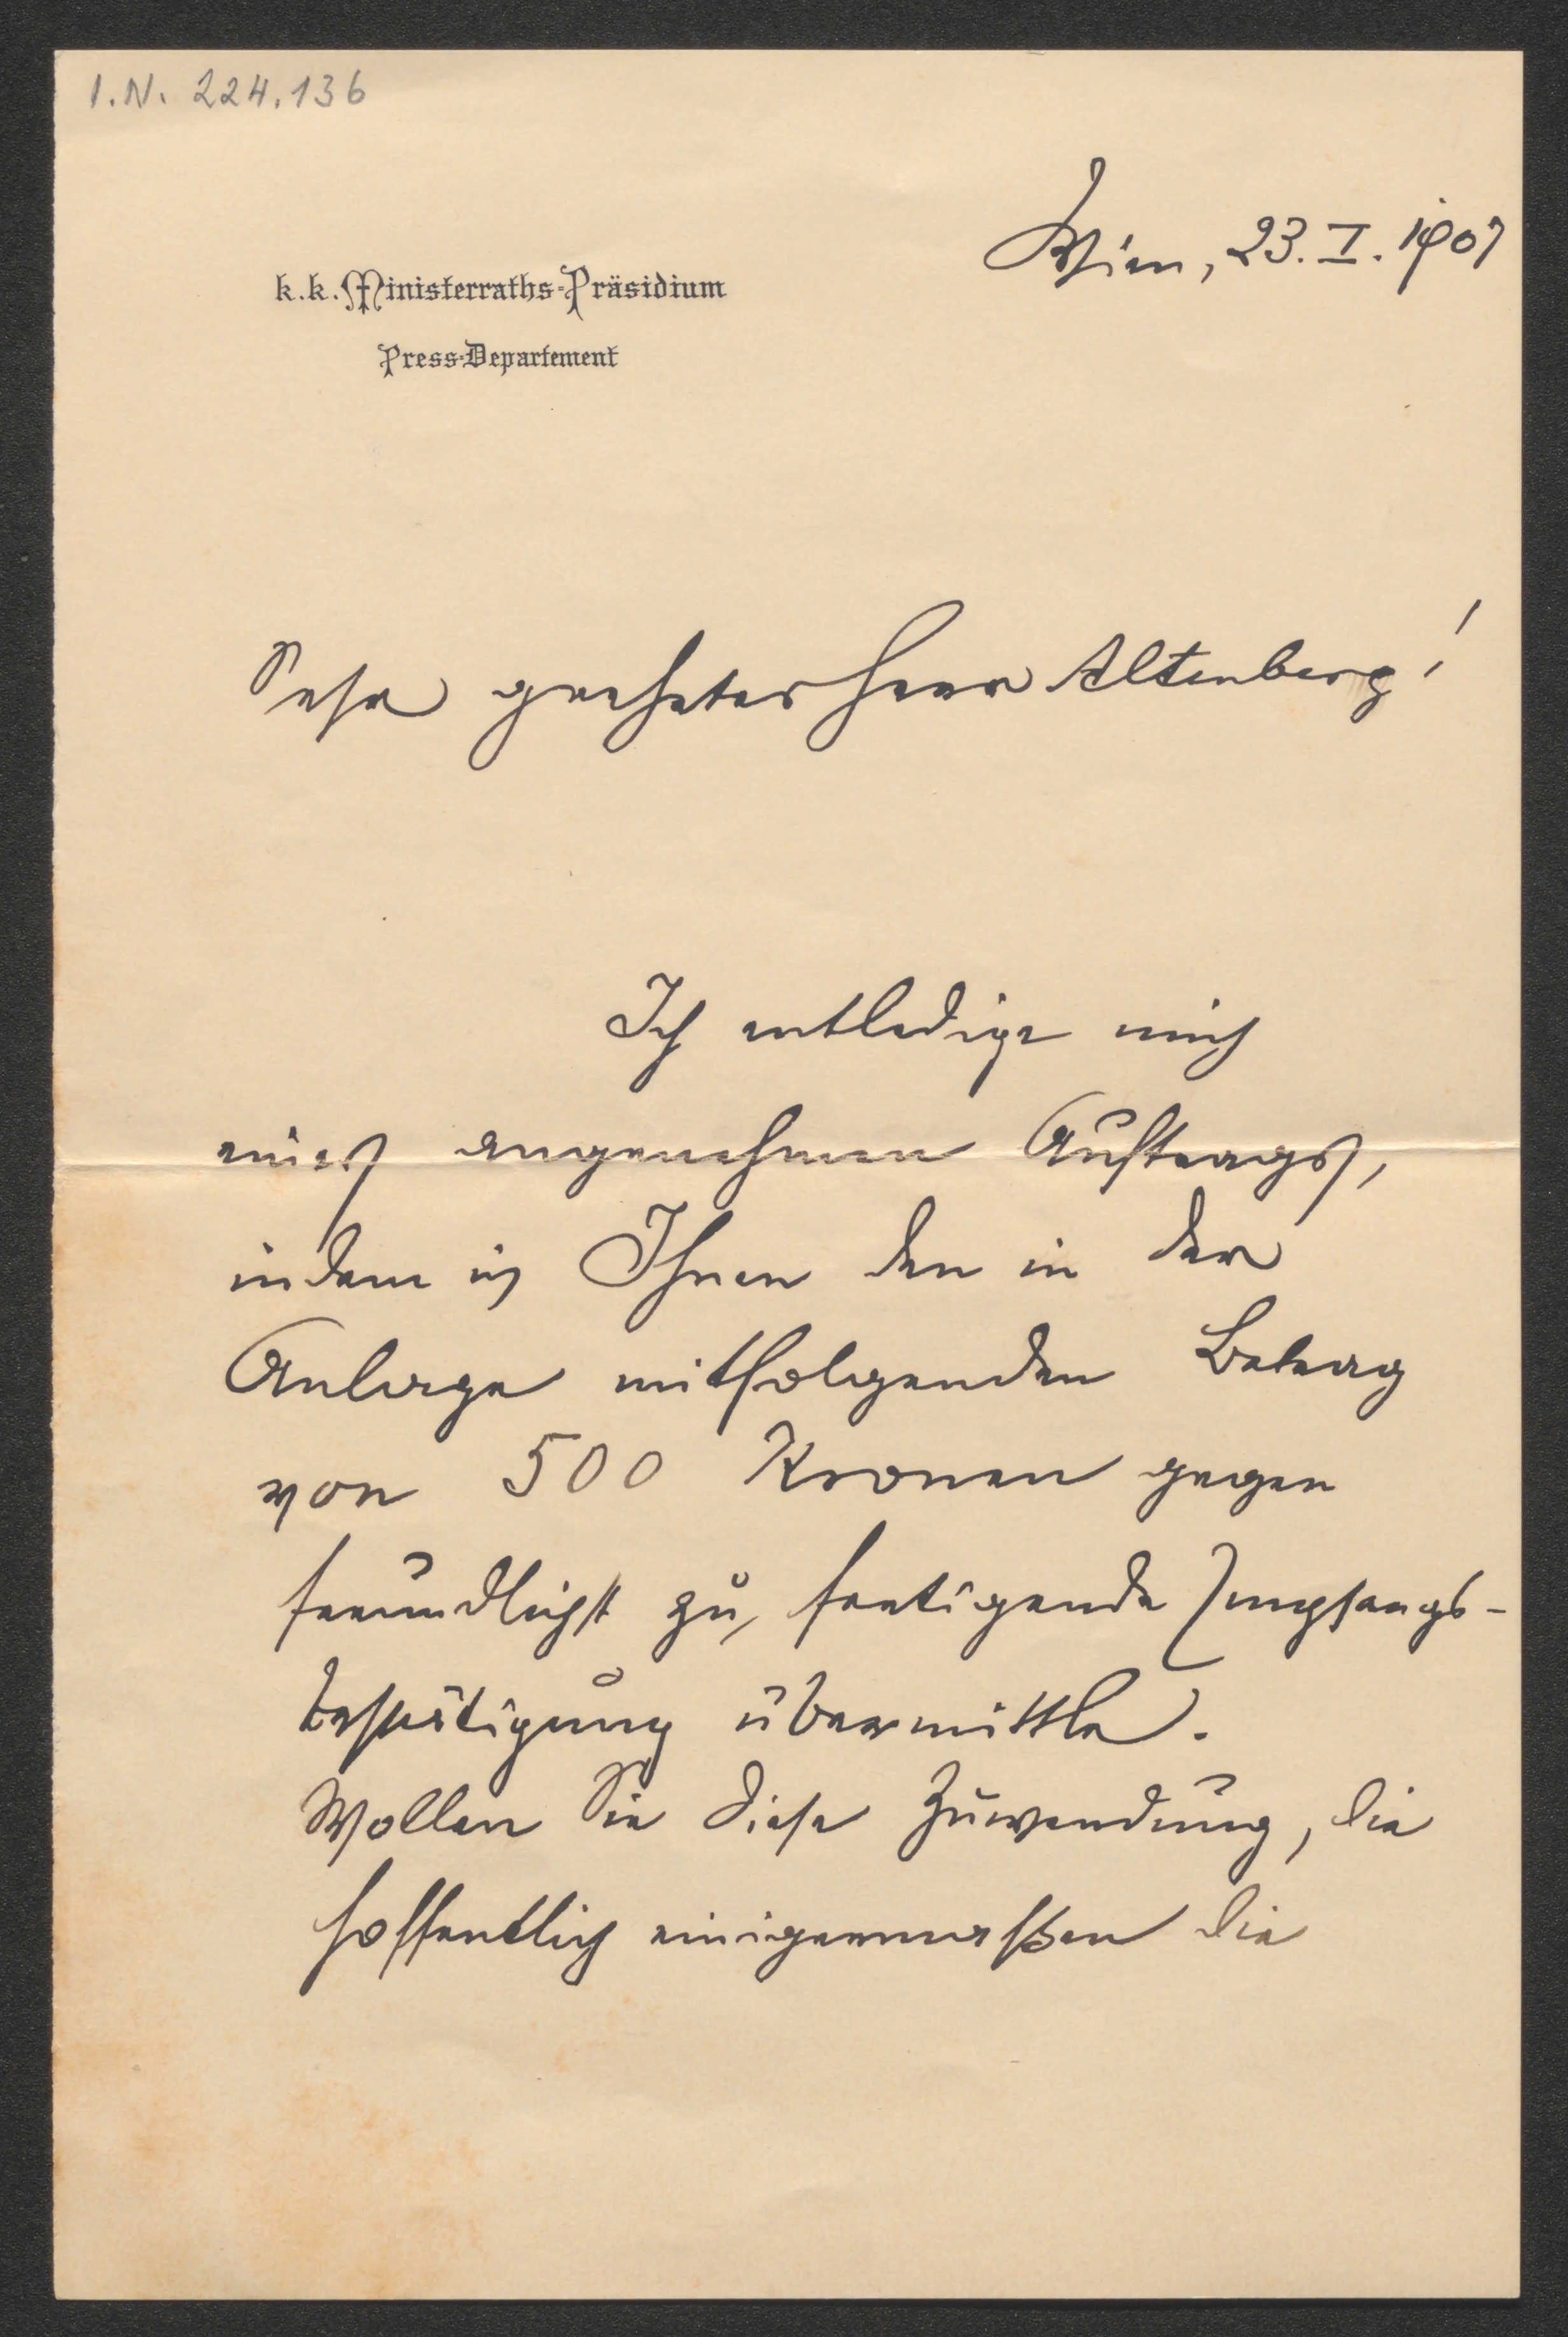 I.N. 224.136
Wien, 23. I. 1907
k.k. Ministerraths-Präsidium
Press-Departement
Sehr geehrter Herr Altenberg!
Ich entledige mich
eines angenehmen Auftrags,
indem ich Ihnen den in der
Anlage mitfolgenden Betrag
von 500 Kronen gegen
freundlichst zu fertigende Empfangs-
bestätigung übermittle.
Wollen Sie diese Zuwendung, die
hoffentlich einigermaßen die